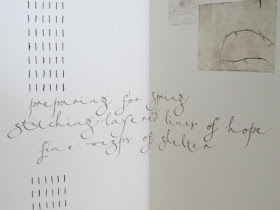 preparing for spring
stitching layered lines of hope
fine wisps of shelter